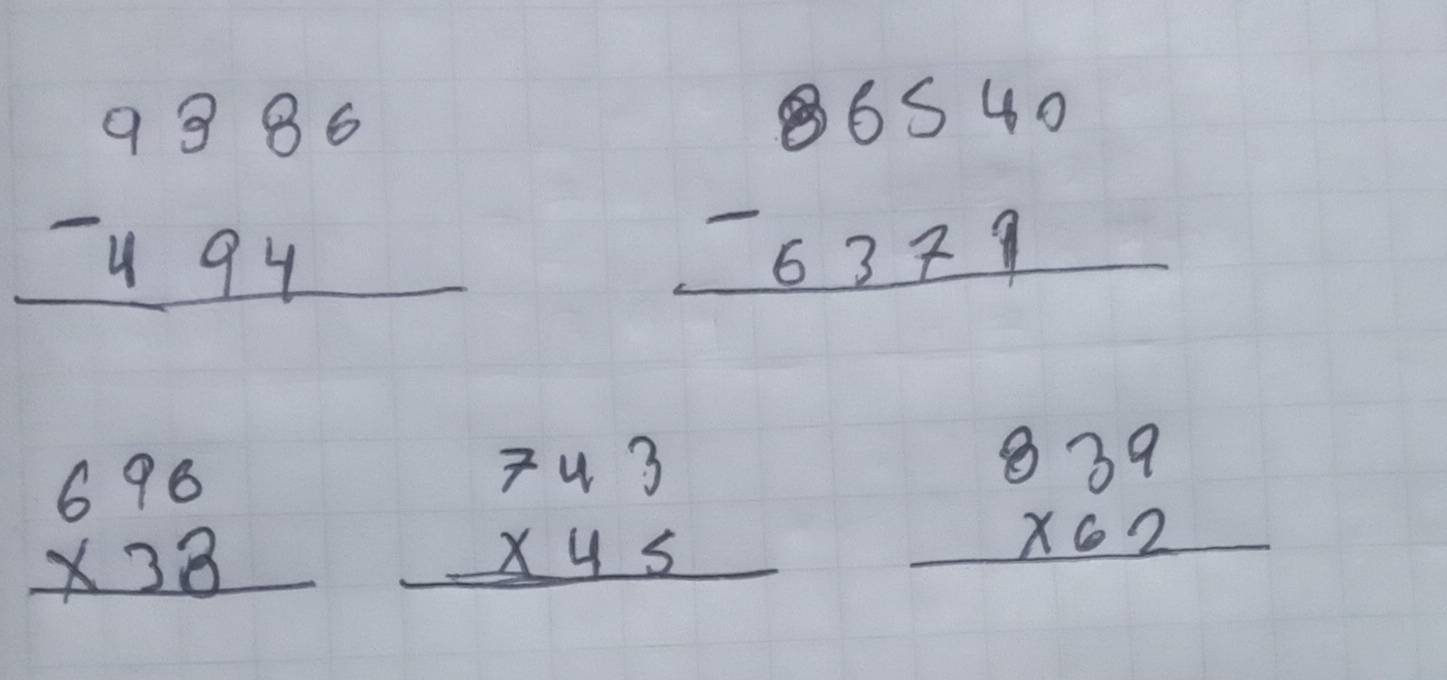 9386
- 494
86540
- 6371
696
x38
743
x45
839
x62